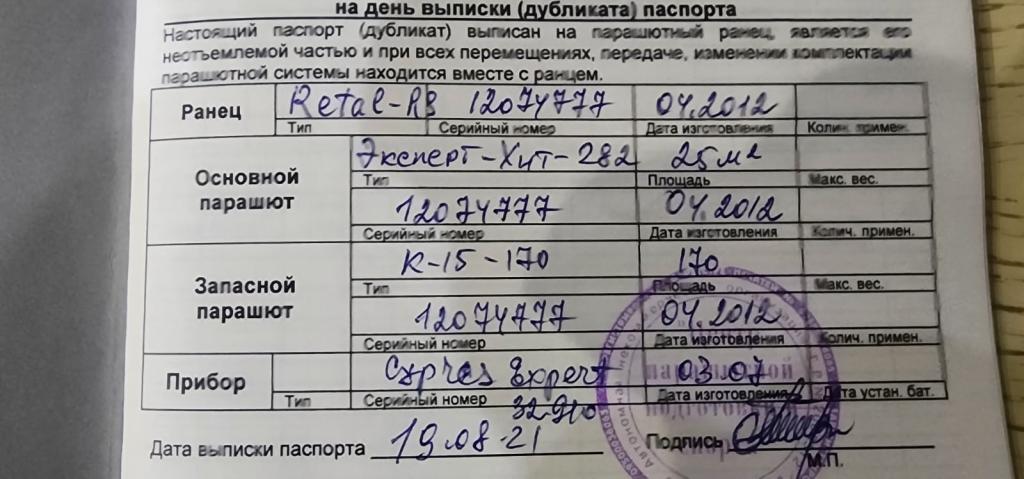 на день выписки (дубликата) паспорта
Настоящий паспорт (дубликат) выписан на парашютный ранец, является его
неотъемлемой частью и при всех перемещениях, передаче, изменении комплектации
парашютной системы находится вместе с ранцем.
Ранец Retal-RB 12074777 04.2012
Тип Серийный номер Дата изготовления Колич. примен.
Основной парашют
Эксперт-Хит-282 25м²
Тип Площадь Макс. вес.
12074777 04.2012
Серийный номер Дата изготовления Колич. примен.
Запасной парашют
К-15-170 170
Тип Площадь Макс. вес.
12074777 04.2012
Серийный номер Дата изготовления Колич. примен.
Прибор Cypres Expert 03.07
Тип Серийный номер Дата изготовления Дата устан. бат.
Дата выписки паспорта 19.08.21 Подпись
М.П.